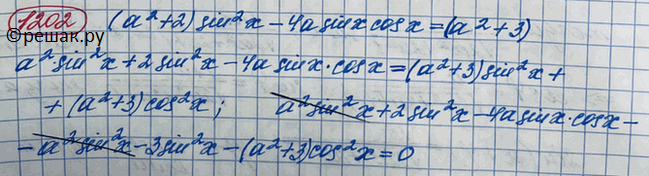 1202 (a²+2) sin²x - 4a sinx cosx = (a²+3)
©решак.ру
a² sin²x + 2 sin²x - 4a sinx · cosx = (a²+3) sin²x +
+ (a²+3) cos²x ; a² sin²x + 2 sin²x - 4a sinx · cosx -
- a² sin²x - 3 sin²x - (a²+3) cos²x = 0